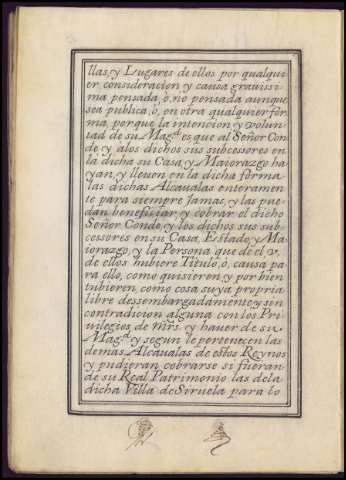 llas, y Lugares de ellos por qualqui-
er consideracion y causa grauissi-
ma pensada, ò, no pensada aunque
sea publica, ò, en otra qualquier for-
ma, porque la intencion y volun-
tad de su Mag.d es que al Señor Con-
de y a los dichos sus subcessores en
la dicha su Casa, y Maiorazgo ha-
yan, y lleuen en la dicha forma
las dichas Alcaualas enteramen-
te para siempre jamas, y las pue-
dan beneficiar, y cobrar el dicho
Señor Conde, y los dichos sus sub-
cessores en su Casa, Estado, y Ma-
iorazgo, y la Persona que de el v,
de ellos hubiere Titulo, ò, causa pa-
ra ello, como quisieren, y por bien
tubieren, como cosa suya propria
libre dessembargadamente, y sin
contradicion alguna con los Pri-
uilegios de mrs. y hauer de su
Mag.d y segun le pertenecen las
demas Alcaualas de estos Reynos
y pudieran cobrarse si fueran
de su Real Patrimonio las de la
dicha Villa de Siruela para lo